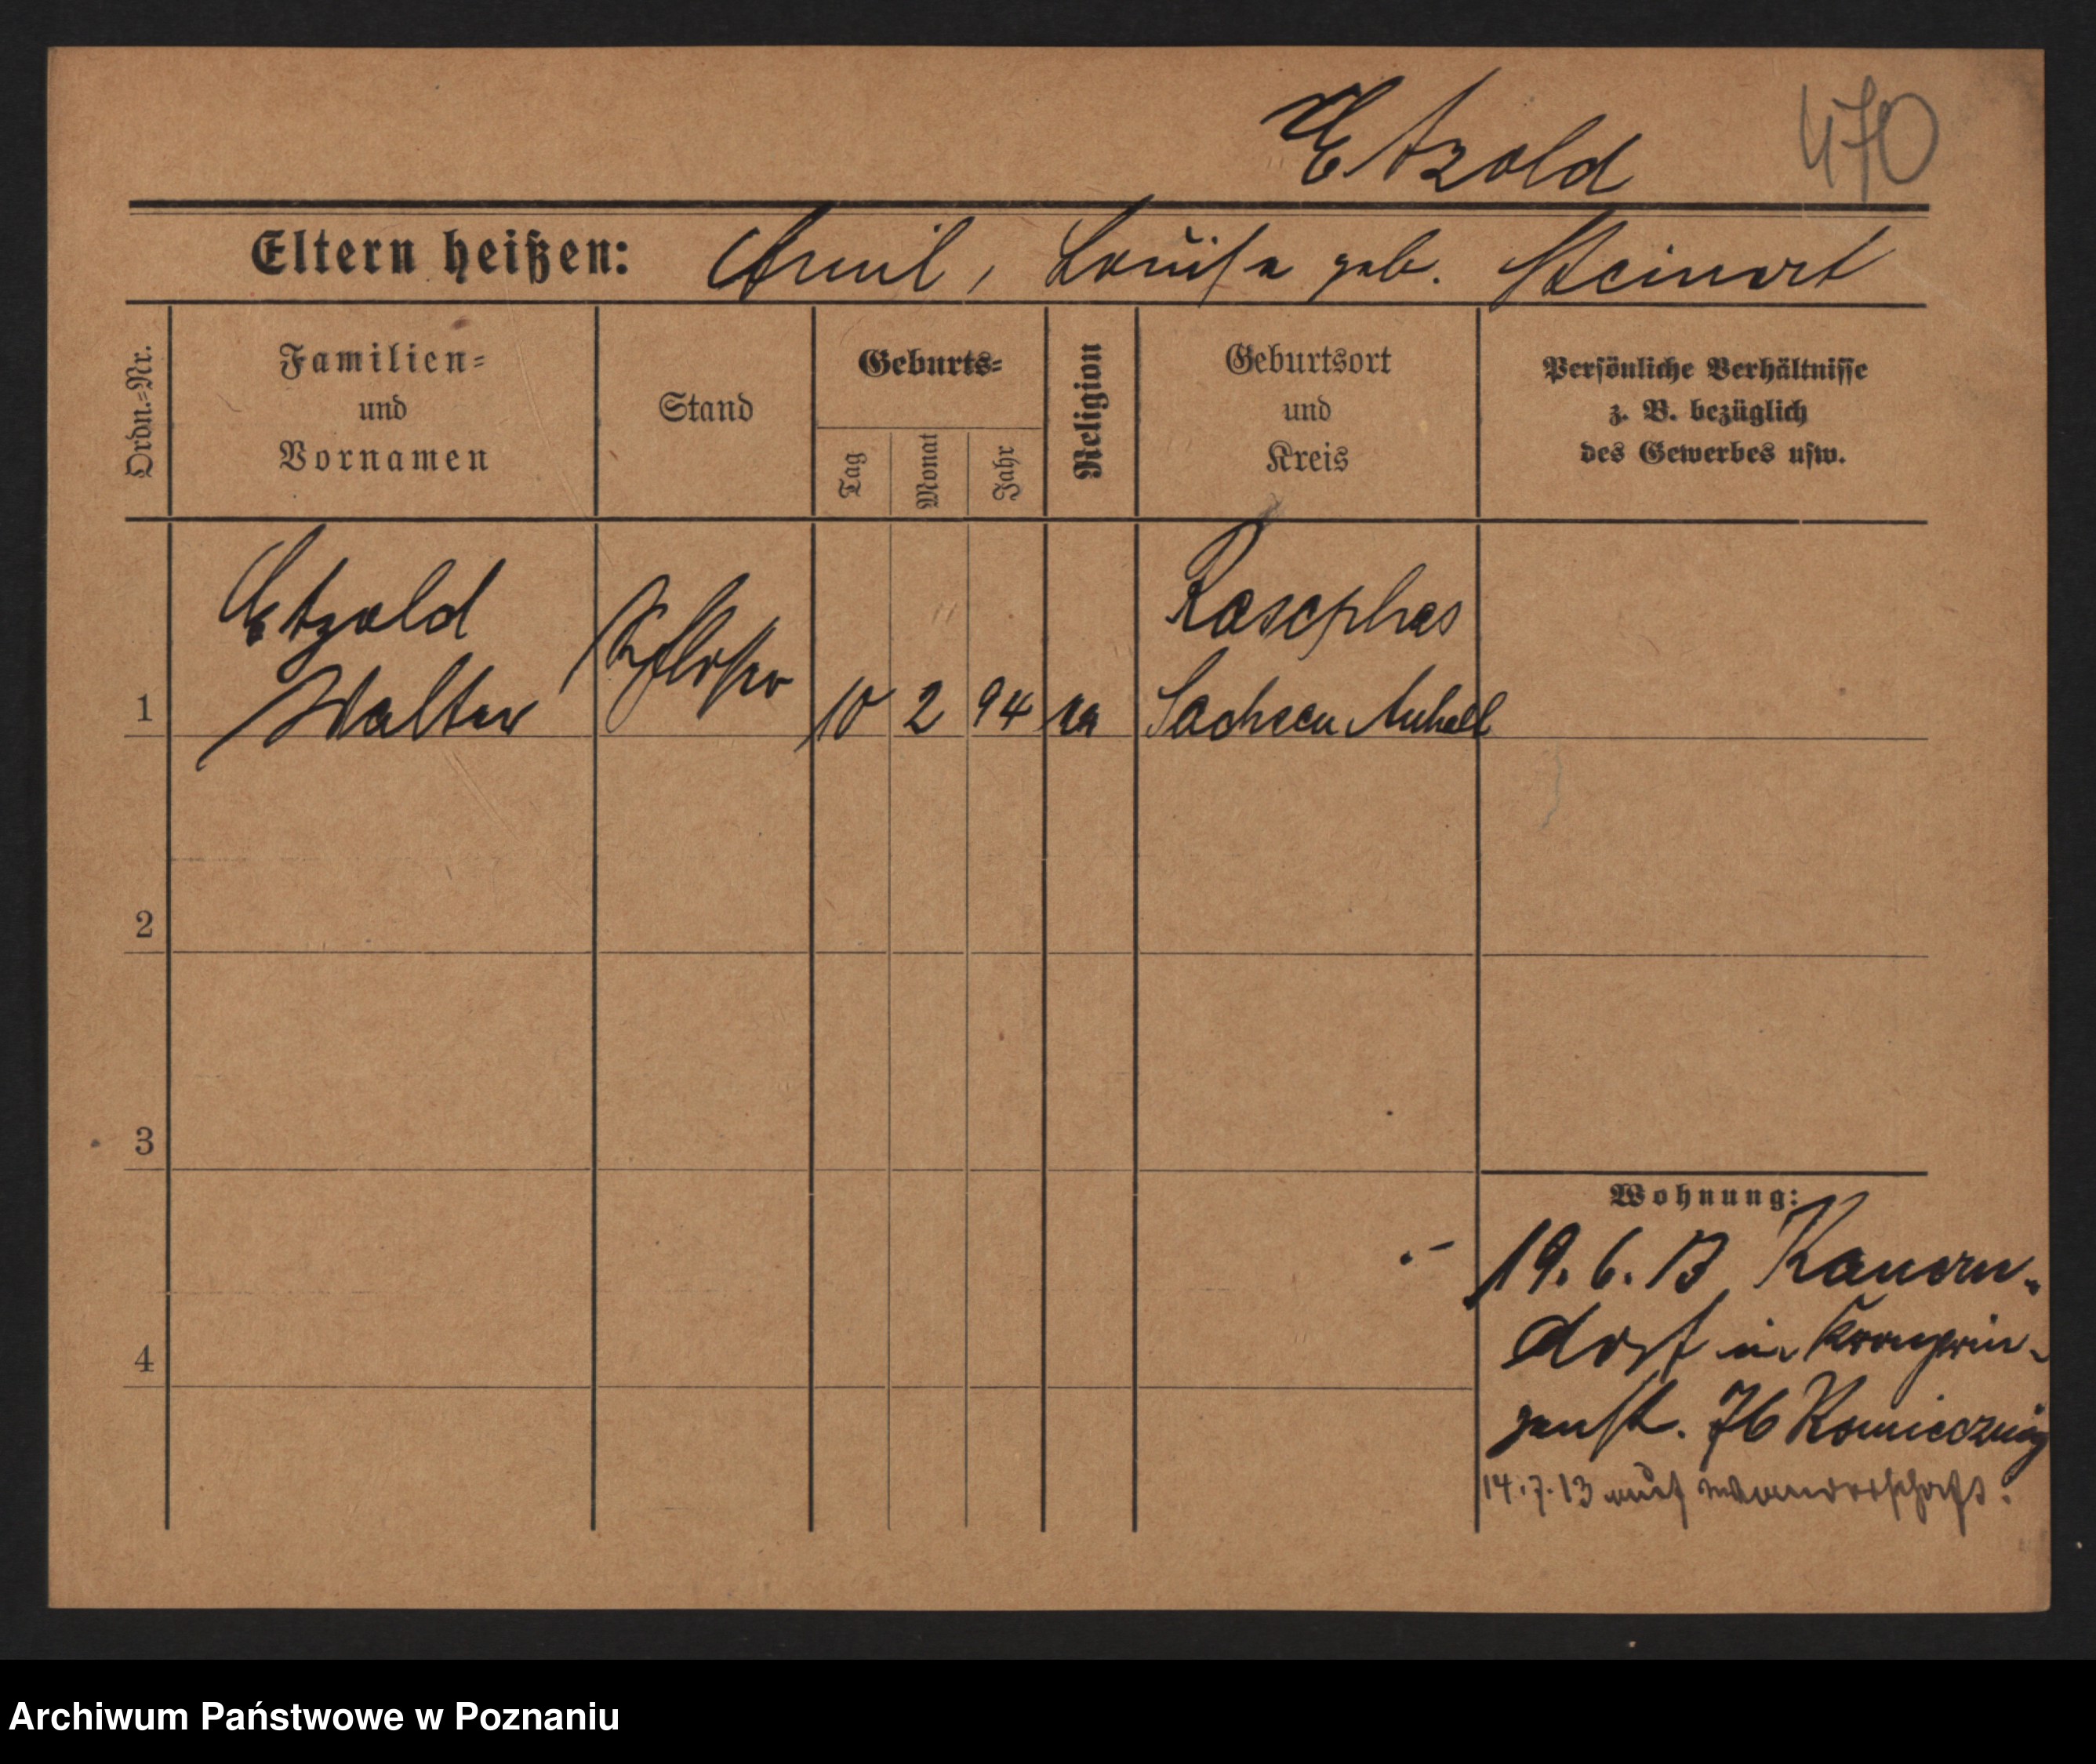 Etzold 470
Eltern heißen: Emil, Louise geb. Steinert
Ordn.=Nr.
Familien=
und
Vornamen
Stand
Geburts=
Tag
Monat
Jahr
Religion
Geburtsort
und
Kreis
Persönliche Verhältnisse
z. B. bezüglich
des Gewerbes usw.
1
Etzold
Walter
Schlosser
10 2 94
Rasephas
Sachsen Anhalt
2
3
4
Wohnung:
19. 6. 13
dorf in Kronprin-
zenst. 76
14.7.13 auf Wanderschaft.
Archiwum Państwowe w Poznaniu